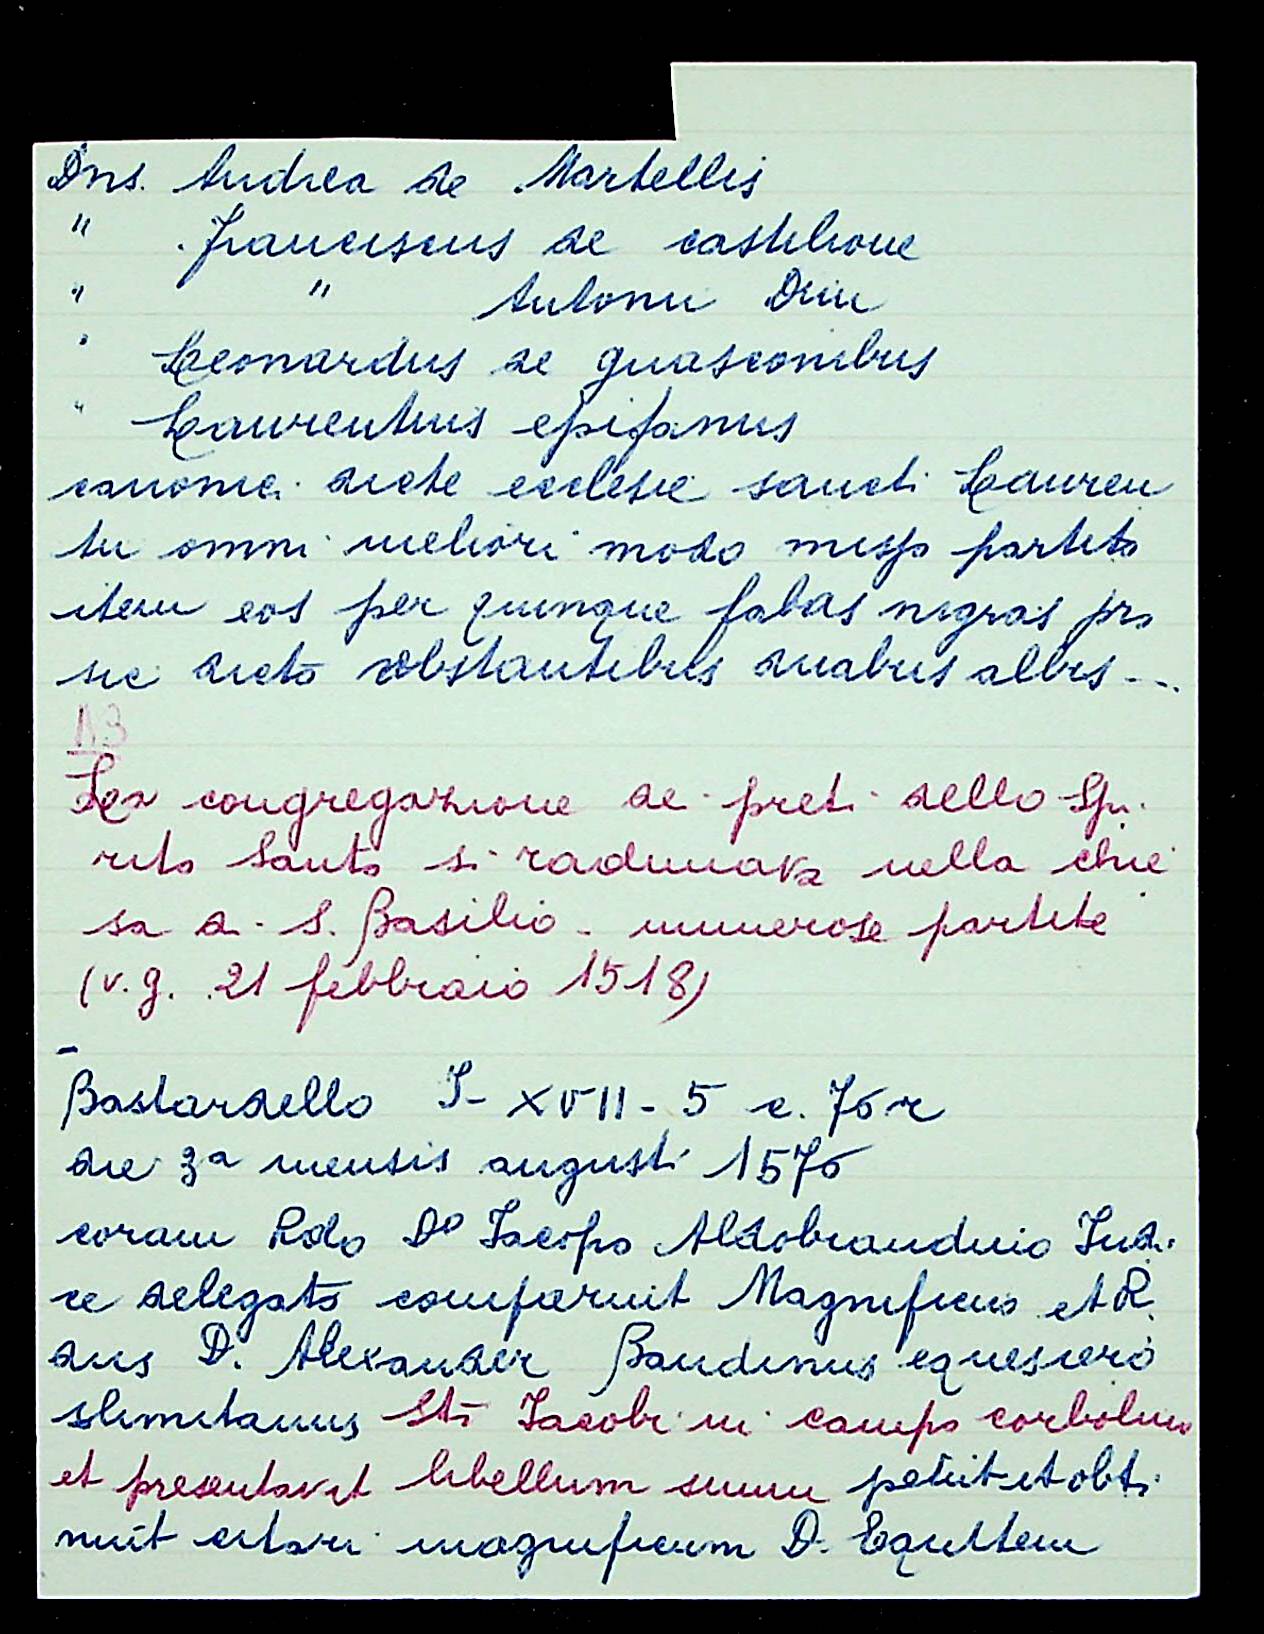 Dns. Andrea de Martellis
" Franciscus de castilione
" " Antonii Dini
" Leonardus de guasconibus
" Laurentius epifanius
canonici dicte ecclesie sancti Lauren
tii omni meliori modo misso partito
item eos per quinque fabas nigras pro
sic dicto obstantibus duabus albis ---
N.B
La congregazione de preti dello Spi-
rito Santo si radunava nella chie
sa di S. Basilio - numerose partite
(v.g. 21 febbraio 1518)
-
Bastardello I- XVII - 5 c. 76 r
die 3a mensis augusti 1576
coram Rdo Do Iacopo Aldobrandinio Iudi-
ce delegato comparuit Magnificus et R.
dus D. Alexander Bandinus eques iero
slimitanus Sti Iacobi in campo corbolino
et presentavit libellum suum petiit et obti
nuit citari magnificum D. Equitem